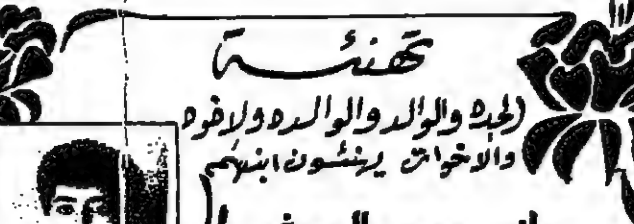 تهنئة
الجده والوالد والوالده والاخوه
والاخوات يهنئون ابنهم